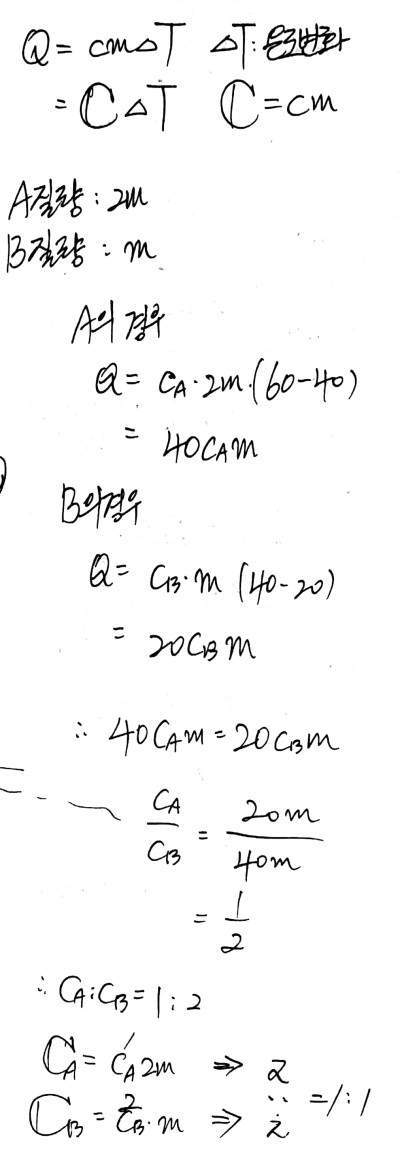 Q = cm△T △T: 온도변화
= C△T C = cm
A질량 : 2m
B질량 : m
A의 경우
Q = cA·2m·(60-40)
= 40cAm
B의경우
Q = cB·m (40-20)
= 20cBm
∴ 40cAm = 20cBm
cA/cB = 20m/40m
= 1/2
∴ cA:cB = 1 : 2
CA = cA 2m ⇒ 2
1
CB = cB·m ⇒ 2
2
: = 1:1